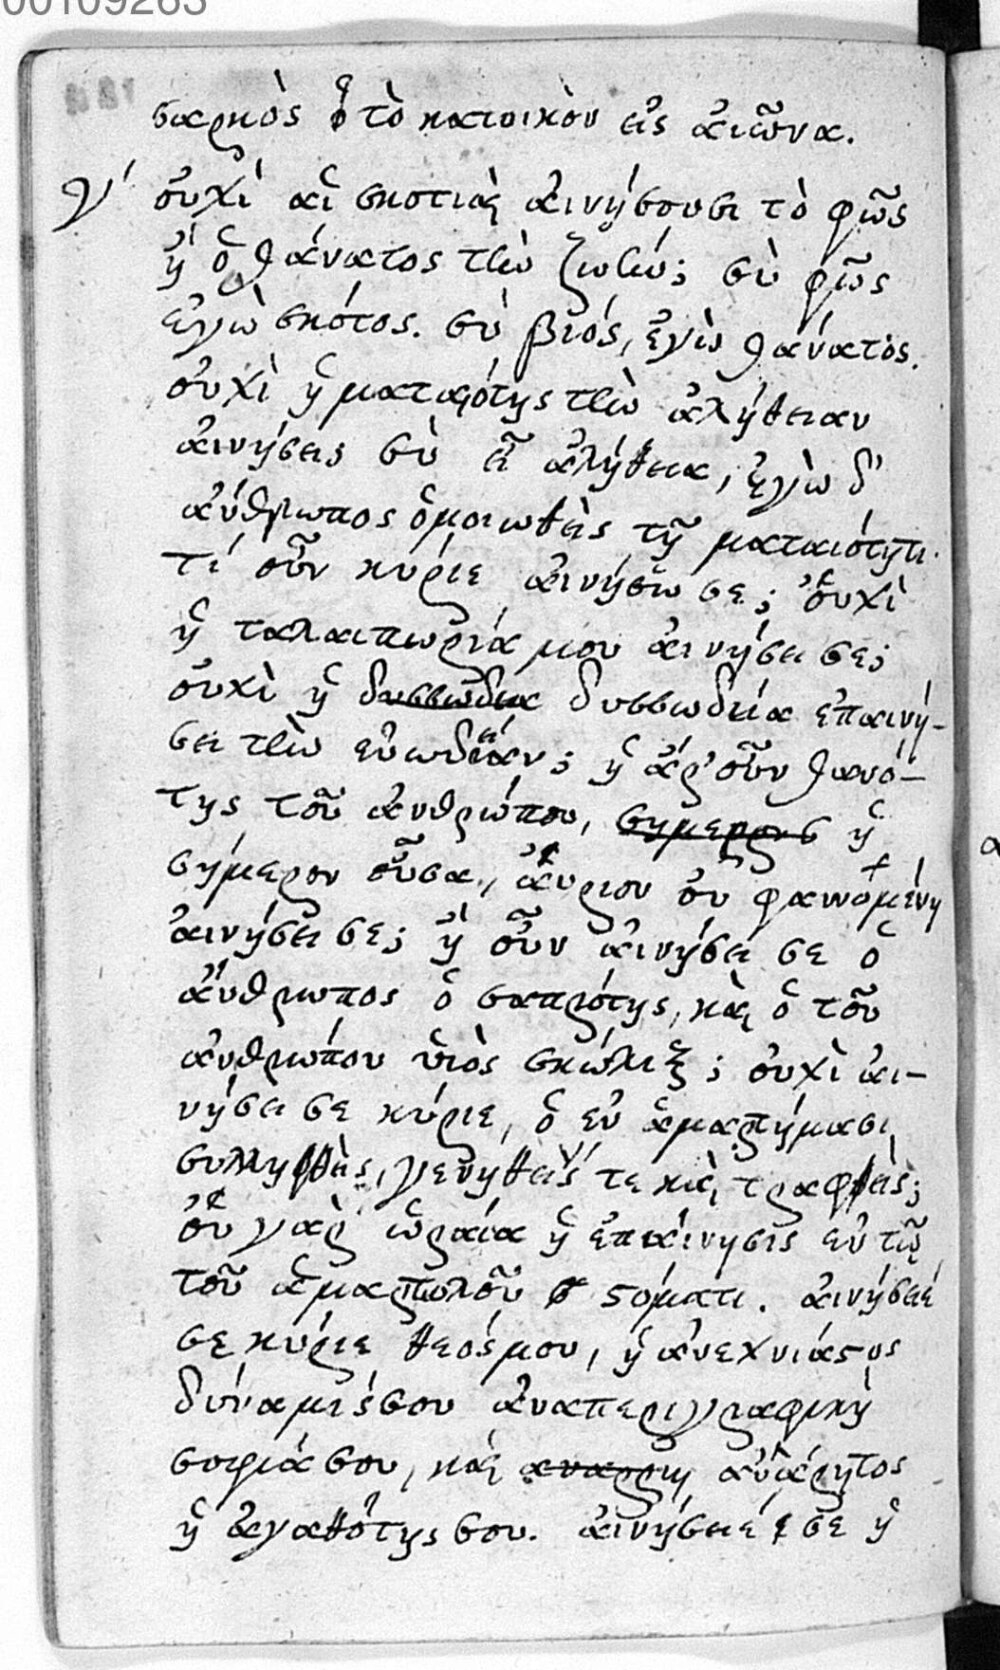 00109263
σαρκὸς ὁ τὸ κατοικὸν εἰς ἀιῶνα.
γ΄ οὐχὶ ἁὶ σκοτιαὶ ἀινήσουσι τὸ φῶς
ἢ ὁ θάνατος τὴν ζωὴν; σὺ φῶς
ἐγὼ σκότος. σὺ βιός, ἐγὼ θάνατος.
οὐχὶ ἡ ματαιότης τὴν ἀλήθειαν
ἀινήσεις σὺ εἶ ἀλήθεια, ἐγὼ δ'
ἄνθρωπος ὁμοιωθεὶς τῇ ματαιότητι.
τί οὖν κύριε ἀινήσω σε; οὐχὶ
ἡ ταλαιπωρία μου ἀινήσει σε;
οὐχὶ ἡ δυσσωδεία ἐπαινή-
σει τὴν εὐωδείαν; ἢ ἆρ' οὖν θανό-
της τοῦ ἀνθρώπου, ἡ
σήμερον οὖσα, ἄυριον οὐ φαινομένη
ἀινήσει σε; ἢ οὖν ἀινήσει σε ὁ
ἄνθρωπος ὁ σαπρότης, καὶ ὁ τοῦ
ἀνθρώπου ὑιὸς σκώληξ; οὐχὶ ἀι-
νήσει σε κύριε, ὁ ἐν ἁμαρτήμασι
συλληφθεὶς, γεννηθείς τε καὶ τραφεὶς;
οὐ γὰρ ὡραία ἡ ἐπαίνησις ἐν τῷ
τοῦ ἁμαρτωλοῦ στόματι. ἀινήσειέ
σε κύριε θεόςμου, ἡ ἀνεχνιάστος
δύναμιςσου ἀναπεριγραφικὴ
σοφιάσου, καὶ ἀνάρητος
ἡ ἀγαθότηςσου. ἀινήσειέ σε ἡ